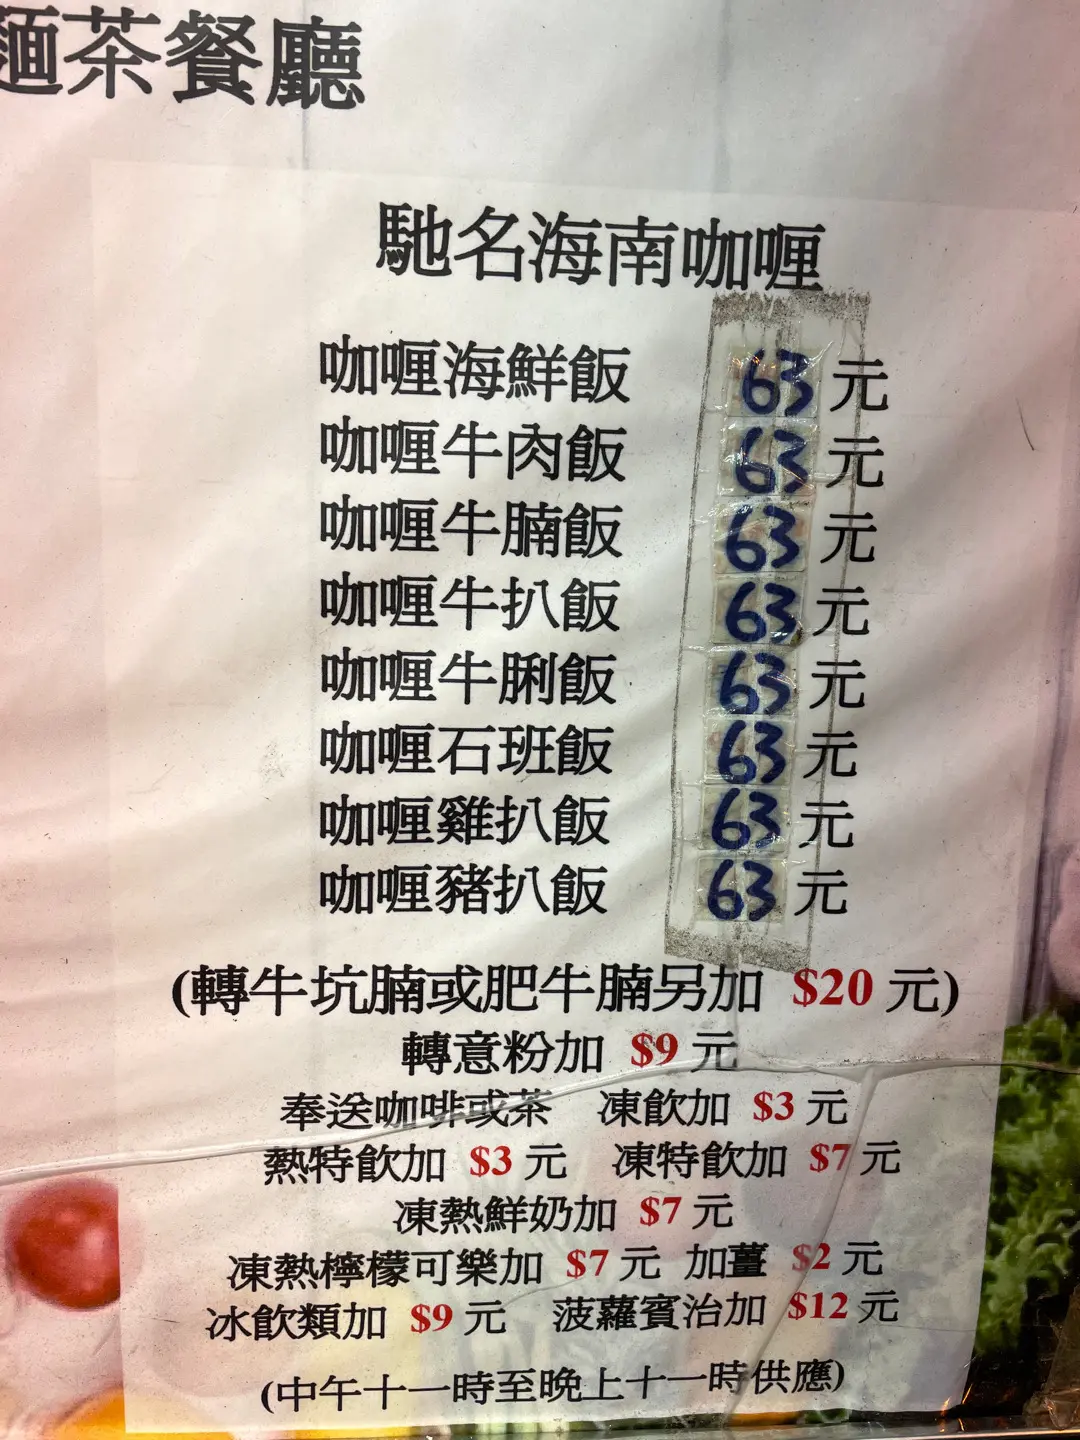 麵茶餐廳
馳名海南咖喱
咖喱海鮮飯 63 元
咖喱牛肉飯 63 元
咖喱牛腩飯 63 元
咖喱牛扒飯 63 元
咖喱牛脷飯 63 元
咖喱石班飯 63 元
咖喱雞扒飯 63 元
咖喱豬扒飯 63 元
(轉牛坑腩或肥牛腩另加 $20 元)
轉意粉加 $9 元
奉送咖啡或茶 凍飲加 $3 元
熱特飲加 $3 元 凍特飲加 $7 元
凍熱鮮奶加 $7 元
凍熱檸檬可樂加 $7 元 加薑 $2 元
冰飲類加 $9 元 菠蘿賓治加 $12 元
(中午十一時至晚上十一時供應)